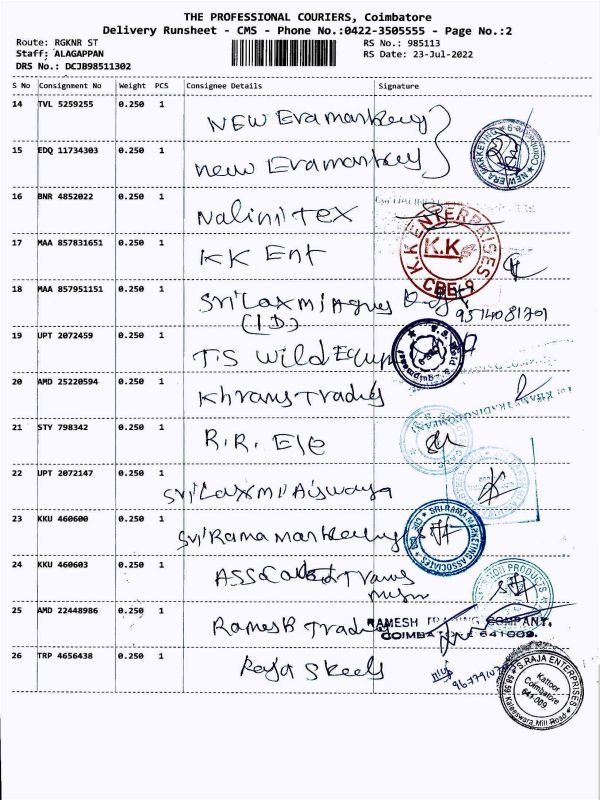 THE PROFESSIONAL COURIERS, Coimbatore
Delivery Runsheet - CMS - Phone No.:0422-3505555 - Page No.:2
Route: RGKNR ST
RS No.: 985113
Staff: ALAGAPPAN
RS Date: 23-Jul-2022
DRS No.: DCJB98511302
S No Consignment No Weight PCS Consignee Details Signature
14 TVL 5259255 0.250 1 NEW Era markeng
15 EDQ 11734303 0.250 1 new Era markey
NEW ERA MARKETING
16 BNR 4852022 0.250 1 Nalini tex
17 MAA 857831651 0.250 1 KK Ent
K.K ENTERPRISES
K.K
CBE-9
18 MAA 857951151 0.250 1 Sri Laxmi
(I.D)
19 UPT 2072459 0.250 1 T.S Wild Equip
20 AMD 25220594 0.250 1 Khrans Trading
21 STY 798342 0.250 1 R.R. Ele
22 UPT 2072147 0.250 1 Sri Laxmi Aiswaya
23 KKU 460600 0.250 1 Sri Rama Markeling
SRI RAMA MARKETING ASSOCIATES
24 KKU 460603 0.250 1 Trans
25 AMD 22448986 0.250 1 Ramesh Trading
RAMESH TRADING COMPANY.
COIMBATORE 641009.
26 TRP 4656438 0.250 1 Raja Steels
S.RAJA ENTERPRISES
Kattoor
Coimbatore
641-009
Kaleeswara Mill Road